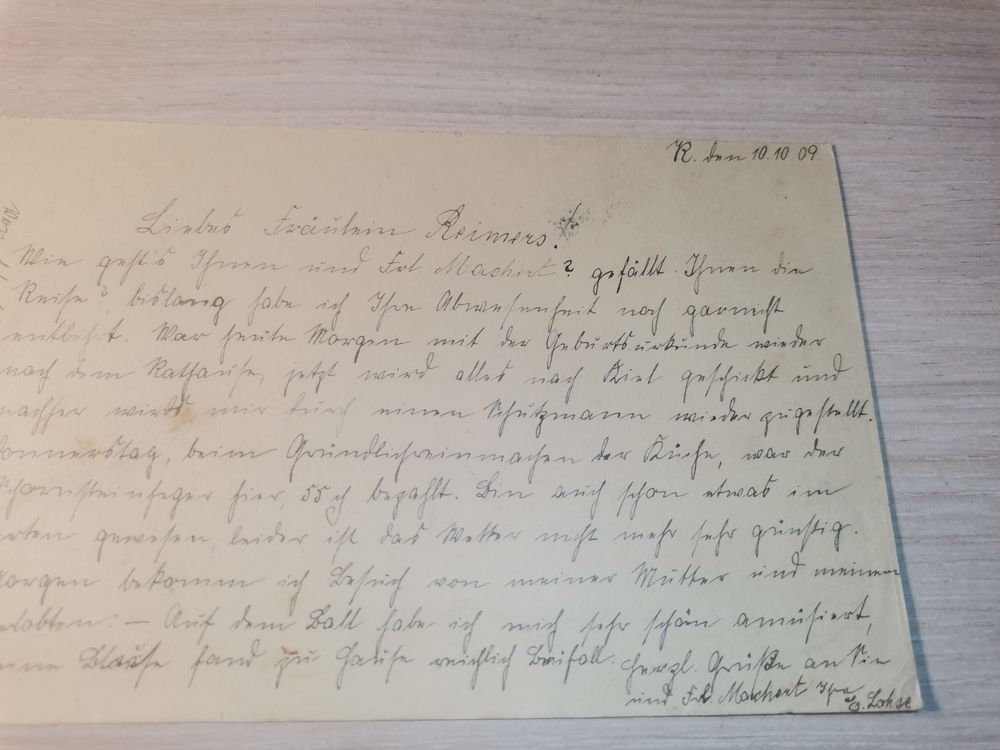 R. den 10.10.09.
Liebes Fräulein Reimers!
Wie geht's Ihnen und Frl. Machert? gefällt Ihnen die
Reise? bislang habe ich Ihre Abwesenheit noch garnicht
entbehrt. War heute Morgen mit der Geburtsurkunde wieder
nach dem Rathause, jetzt wird alles nach Kiel geschickt und
nachher wirds mir durch einen Schutzmann wieder zugestellt.
onnerstag, beim Gründlichreinmachen der Küche, war der
chornsteinfeger hier, 55 ₰ bezahlt. Bin auch schon etwas im
arten gewesen, leider ist das Wetter nicht mehr sehr günstig.
orgen bekomm ich Besuch von meiner Mutter und meinem
erlobten. — Auf dem Ball habe ich mich sehr schön amüsiert,
eine Blouse fand zu Hause reichlich Beifall. Herzl. Grüße an Sie
und Frl. Machert Ihre E. Lohse